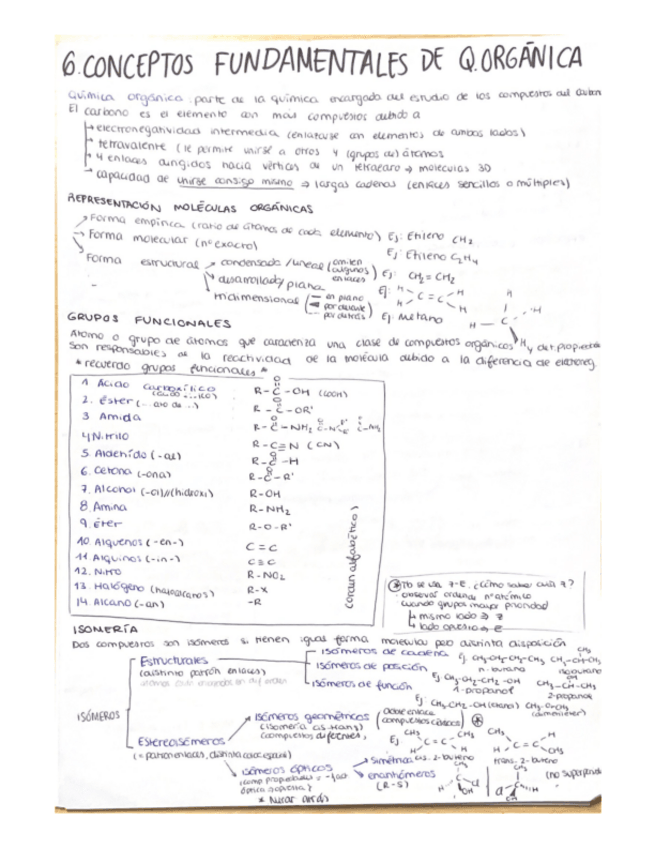 6. CONCEPTOS FUNDAMENTALES DE Q. ORGÁNICA
Química orgánica: parte de la química encargada del estudio de los compuestos del carbon
El carbono es el elemento con más compuestos debido a
electronegatividad intermedia (enlazarse con elementos de ambos lados)
tetravalente (le permite unirse a otros 4 (grupos de) átomos
4 enlaces dirigidos hacia vértices de un tetraedro → moléculas 3D
capacidad de unirse consigo mismo → largas cadenas (enlaces sencillos o múltiples)
REPRESENTACIÓN MOLÉCULAS ORGÁNICAS
Forma empírica (ratio de átomos de cada elemento) Ej: Etileno CH2
Forma molecular (nº exacto) Ej: Etileno C2H4
Forma estructural → condensada/lineal (omiten algunos enlaces) Ej: CH2=CH2
desarrollada/plana Ej: H H C=C H H
tridimensional (— en plano por delante por detrás) Ej: Metano H H C H H
GRUPOS FUNCIONALES
Átomo o grupo de átomos que caracteriza una clase de compuestos orgánicos y det. propiedade
Son responsables de la reactividad de la molécula debido a la diferencia de electroneg.
* recuerdo grupos funcionales *
1 Ácido carboxílico (ácido ...ico) R-C-OH (COOH) O
2. Éster (...ato de ...) R-C-OR' O
3 Amida R-C-NH2 O
4 Nitrilo R-C≡N (CN)
5. Aldehído (-al) R-C-H O
6. Cetona (-ona) R-C-R' O
7. Alcohol (-ol)//(hidroxi) R-OH
8. Amina R-NH2
9. Éter R-O-R'
10. Alquenos (-en-) C=C
11. Alquinos (-in-) C≡C
12. Nitro R-NO2
13. Halógeno (haloalcanos) R-X
14. Alcano (-an) -R
(orden alfabético)
* No se usa Z-E. ¿Cómo saber cuál?
· observar ordenar nº atómico
cuando grupos mayor prioridad
mismo lado → Z
lado opuesto → E
ISOMERÍA
Dos compuestos son isómeros si tienen igual forma molecular pero distinta disposición
ISÓMEROS
Estructurales
(distinto patrón enlaces)
isómeros de cadena Ej CH3-CH2-CH2-CH3 n-butano CH3-CH-CH3 CH3 isobutano
isómeros de posición Ej CH3-CH2-CH2-OH 1-propanol CH3-CH-CH3 OH 2-propanol
isómeros de función Ej: CH3-CH2-OH (etanol) CH3-O-CH3 (dimetiléter)
Estereoisómeros
(= patrón enlaces, distinta coloc. espacial)
isómeros geométricos (doble enlace compuestos cíclicos) *
(isomería cis-trans)
(compuestos diferentes)
Ej CH3 CH3 C=C H H cis. 2-buteno
CH3 H C=C H CH3 trans. 2-buteno
isómeros ópticos
óptica
Simétricas
enantiómeros
(R-S)
(no superponib
* Mirar atrás